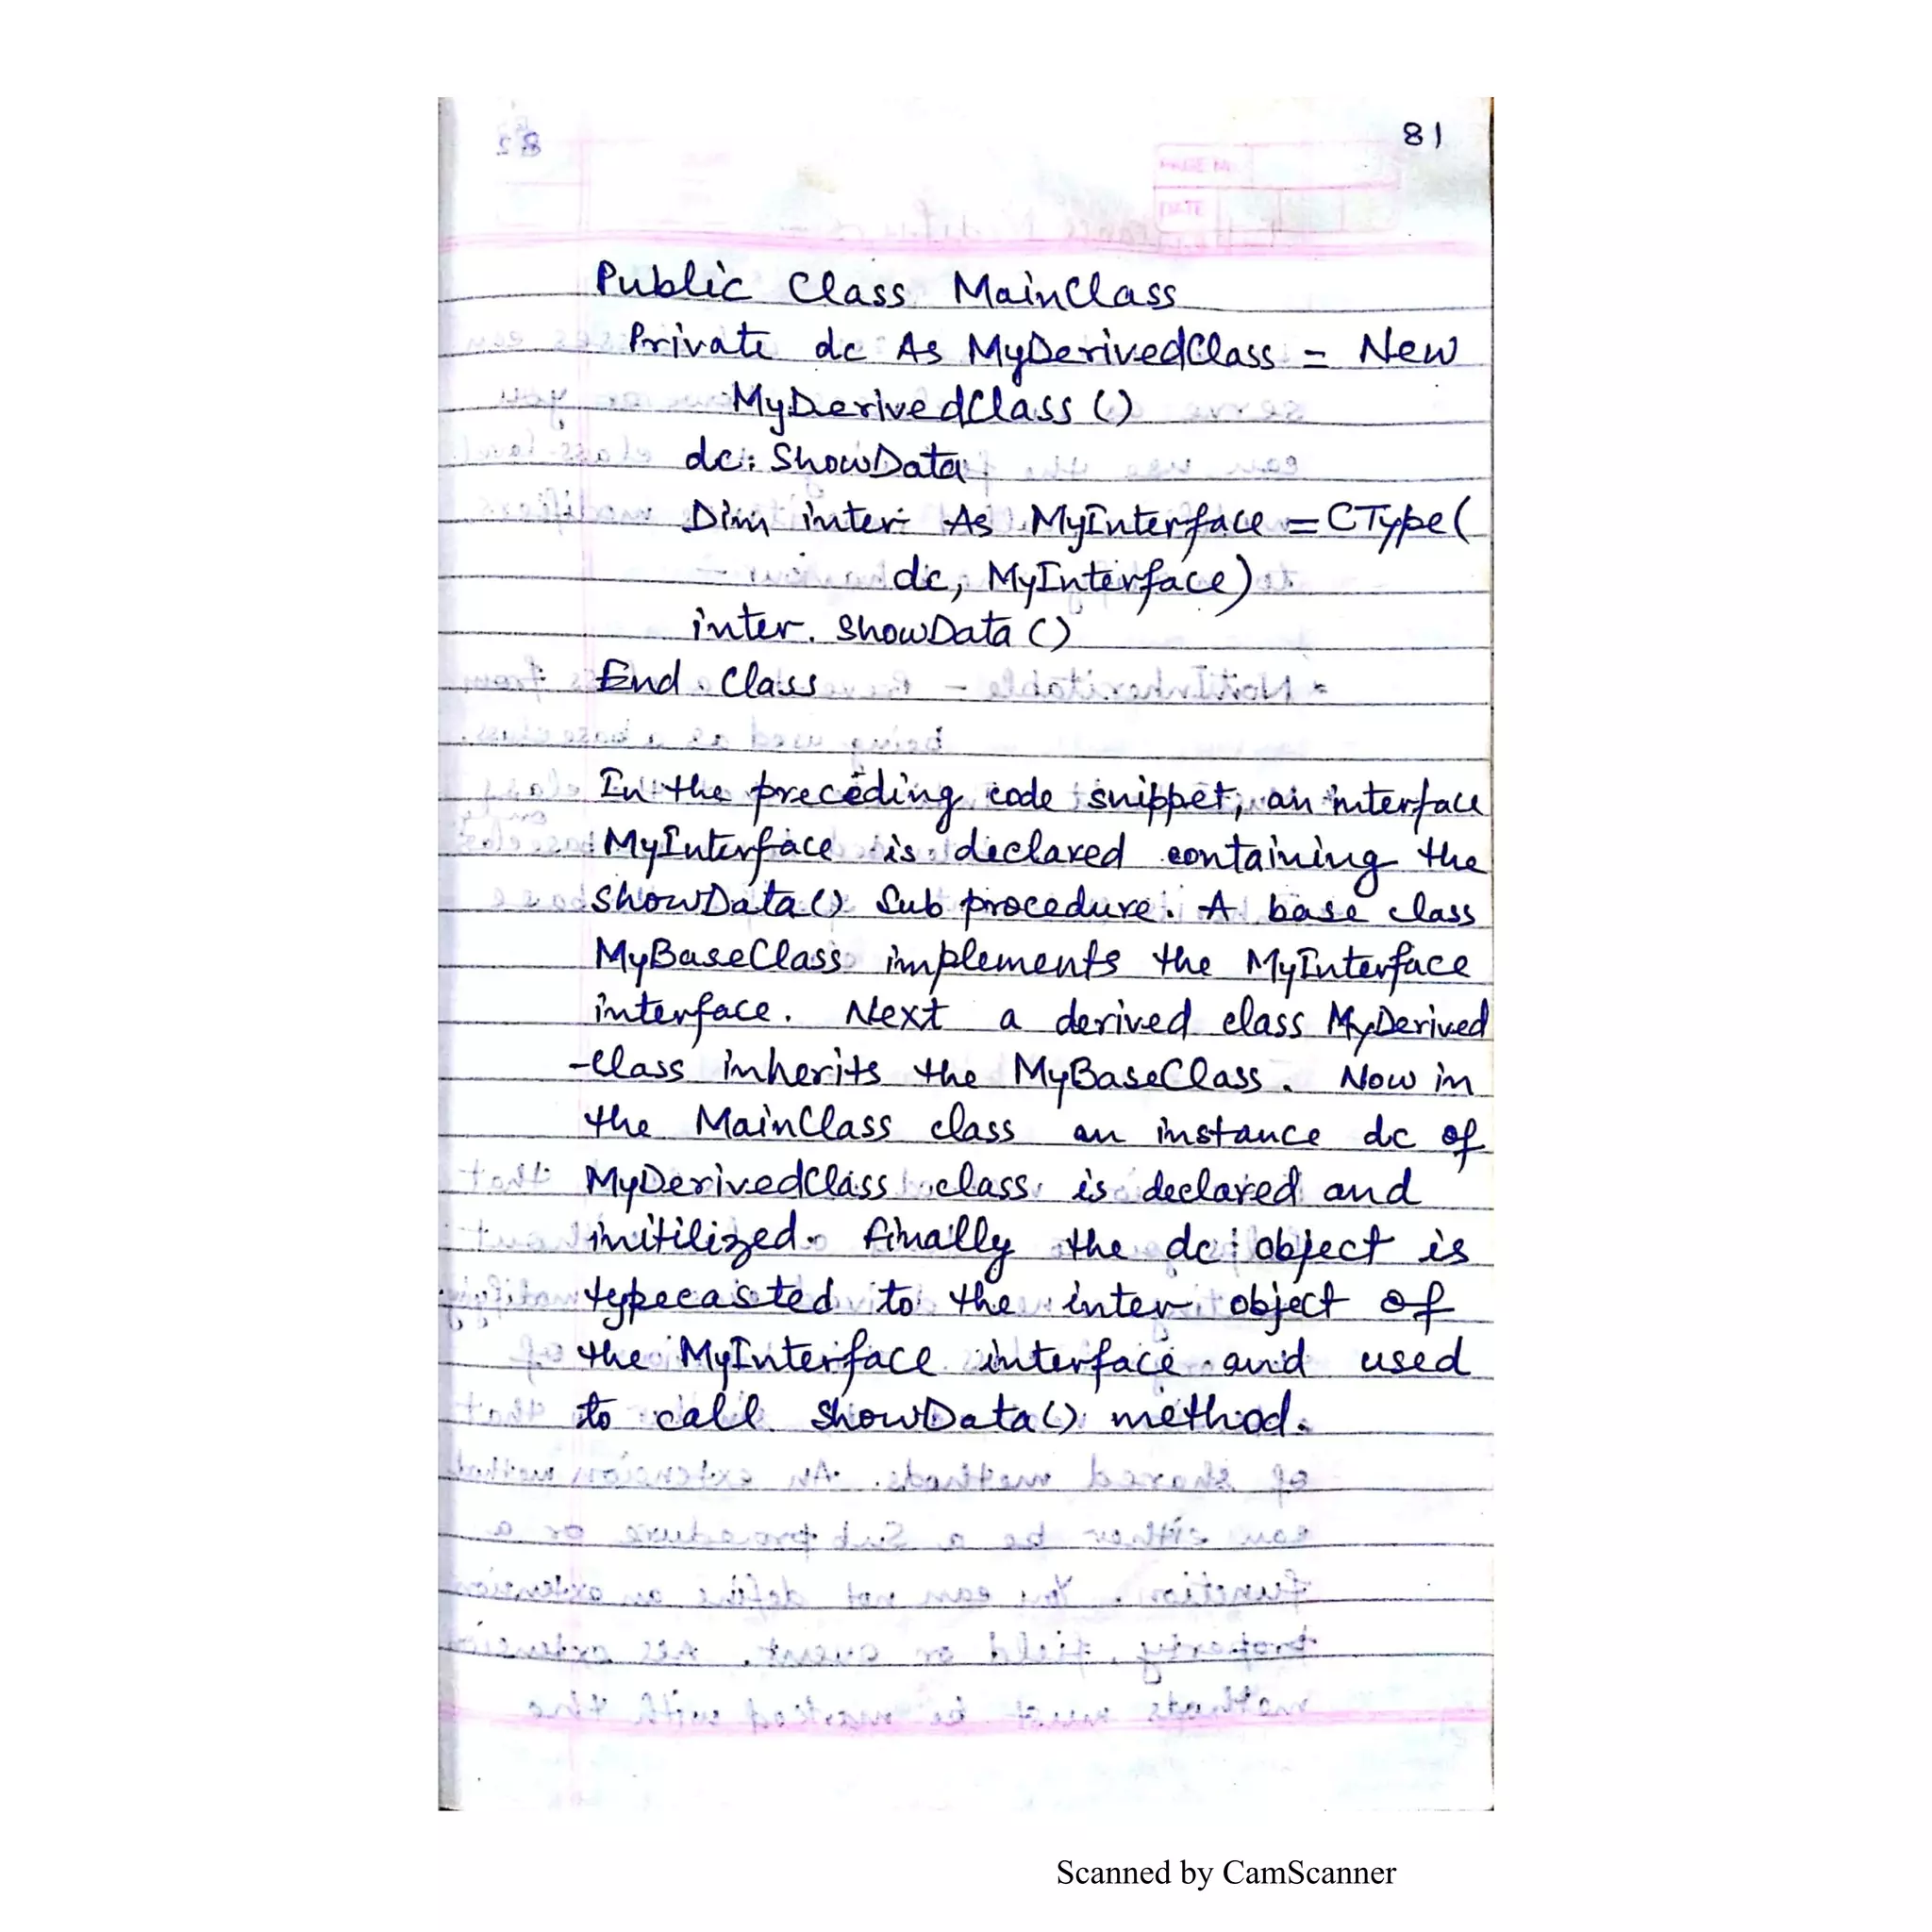 81
Public Class MainClass
Private dc As MyDerivedClass = New
MyDerivedClass ()
dc. ShowData
Dim inter As MyInterface = CType(
dc, MyInterface)
inter. ShowData ()
End Class
In the preceding code snippet, an interface
MyInterface is declared containing the
ShowData() Sub procedure. A base class
MyBaseClass implements the MyInterface
interface. Next a derived class MyDerived
-Class inherits the MyBaseClass. Now in
the MainClass class an instance dc of
MyDerivedClass class is declared and
initilized. Finally the dc object is
typecasted to the inter object of
the MyInterface interface and used
to call ShowData() method.
Scanned by CamScanner